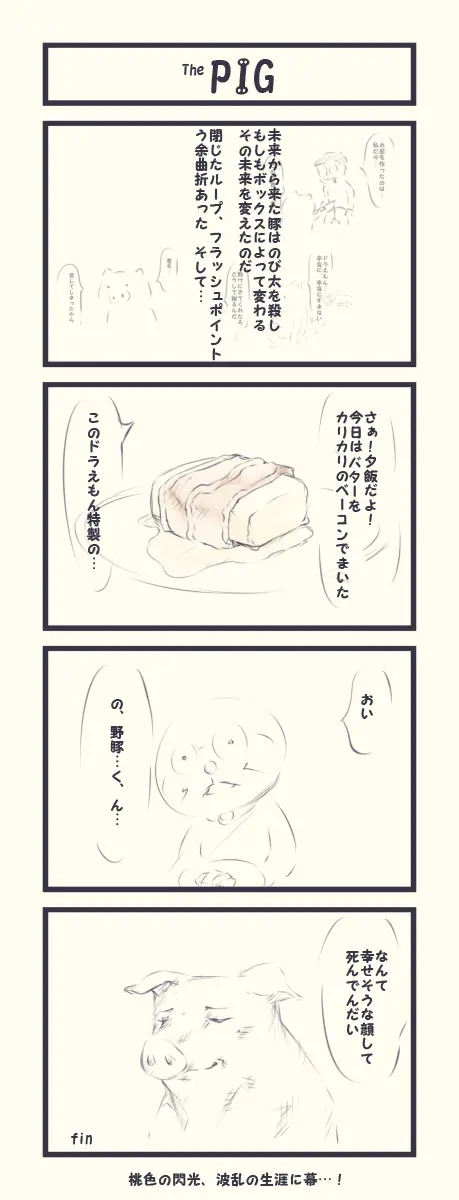 The PIG
未来から来た豚はのび太を殺し
もしもボックスによって変わる
その未来を変えたのだ
閉じたループ、フラッシュポイント
う余曲折あった そして…
お前を作ったのは…
私だ…
ドラえもん…
本当に、本当にすまない
どうして謝るんだ
愛してしまったから
さぁ！夕飯だよ！
今日はバターを
カリカリのベーコンでまいた
このドラえもん特製の…
おい
の、野豚…く、ん…
なんて
幸せそうな顔して
死んでんだい
fin
桃色の閃光、波乱の生涯に幕…！